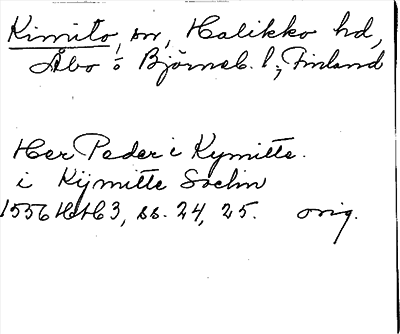 Kimito, sn, Halikko hd,
Åbo o Björneb. l; Finland
Her Peder i Kymitte.
i Kijmitte Sochn
1556 HH3, ss. 24, 25. orig.